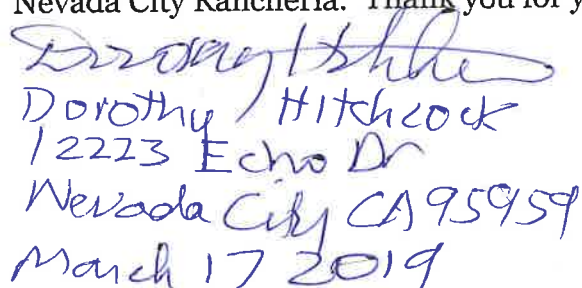 Nevada City Rancheria. Thank you for y
Dorothy Hitchcock
Dorothy Hitchcock
12223 Echo Dr
Nevada City CA 95959
March 17 2019